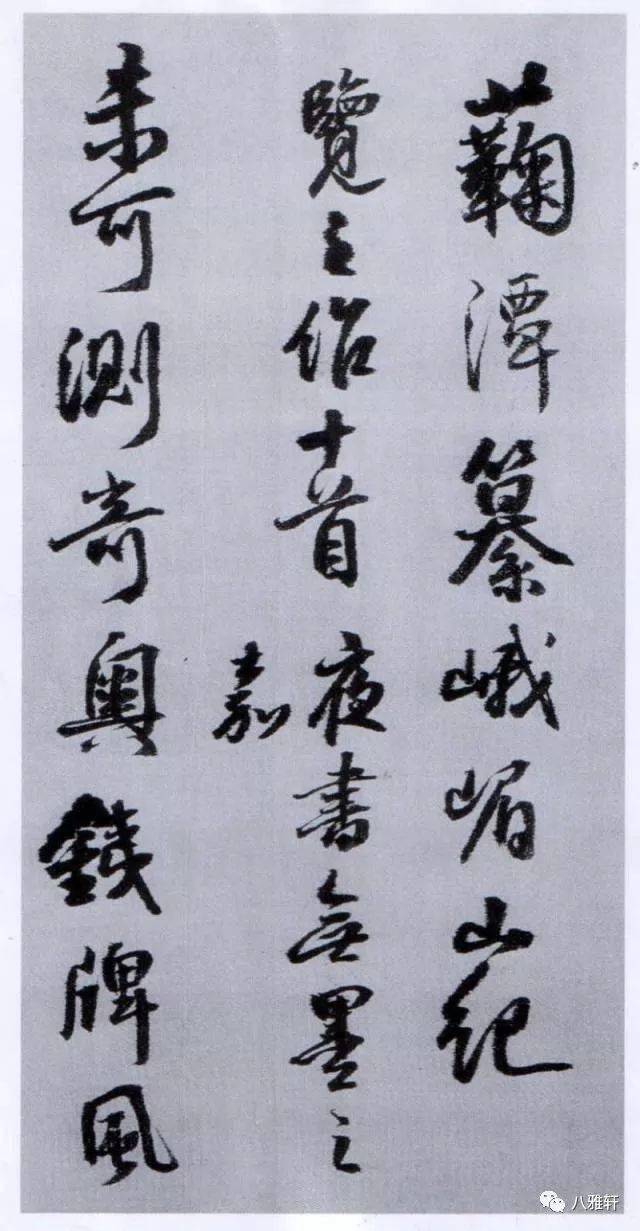 蘜潭纂峨嵋山紀
覽之作十首 夜書無墨之
嘉
未可測奇奥錢牌風
八雅轩